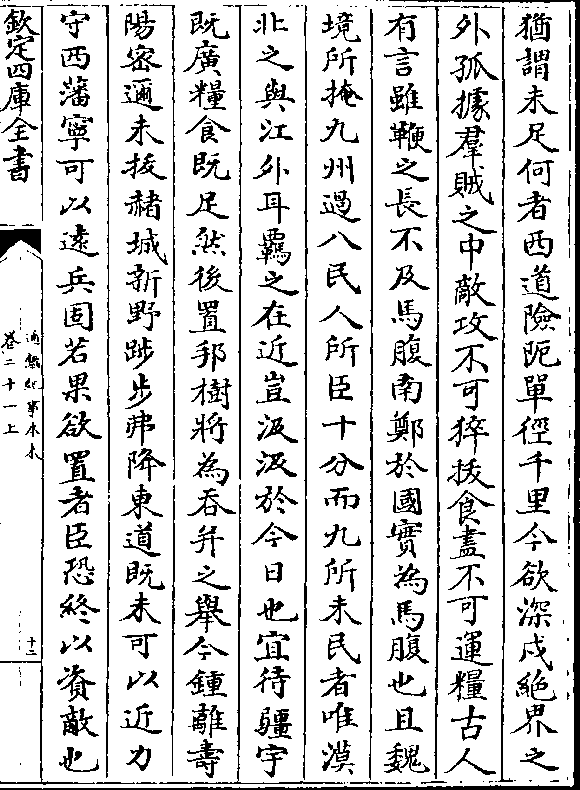 猶謂未足何者西道險阨單徑千里今欲深戍絶界之
外孤據羣賊之中敵攻不可猝援食盡不可運糧古人
有言雖鞭之長不及馬腹南鄭於國實為馬腹也且魏
境所掩九州過八民人所臣十分而九所未民者唯漠
北之與江外耳羈之在近豈汲汲於今日也宜待疆宇
既廣糧食既足然後置邦樹將為吞并之舉今鍾離壽
陽密邇未拔赭城新野跬步弗降東道既未可以近力
守西藩寧可以遠兵固若果欲置者臣恐終以資敵也
欽定四庫全書
通鑑紀事本末
卷二十一上
十二